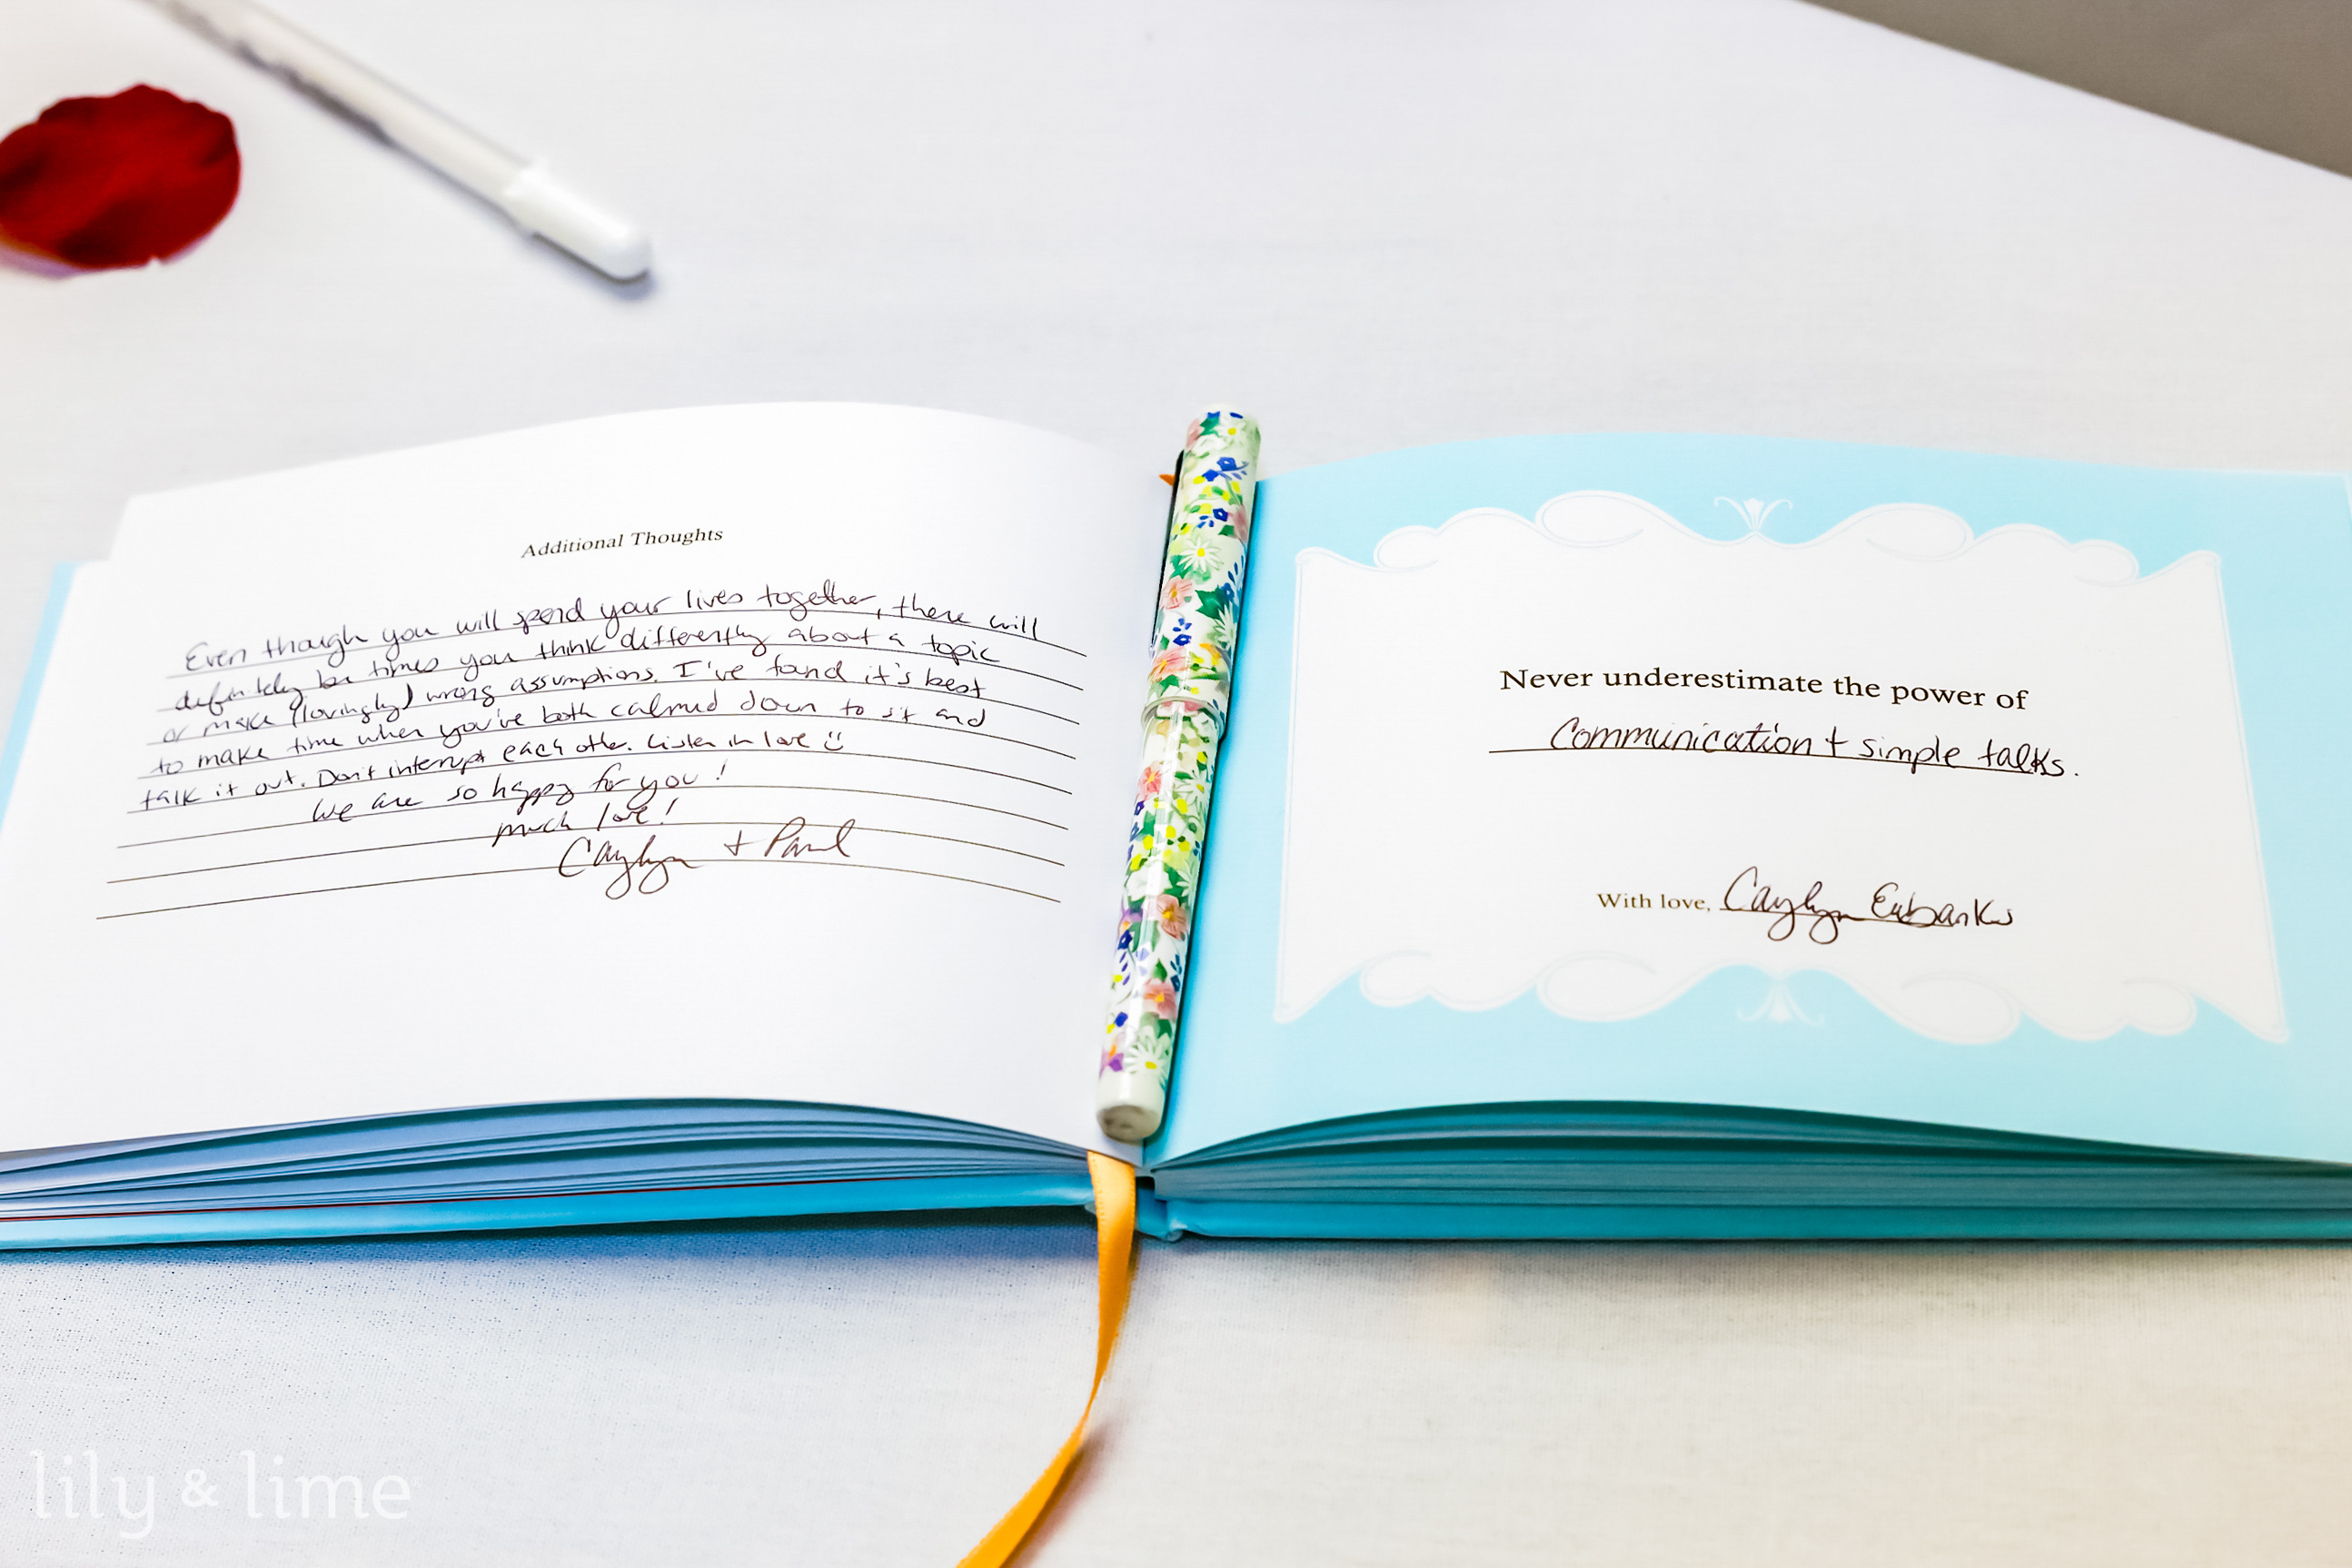 Additional Thoughts
Even though you will spend your lives together, there will
definitely be times you think differently about a topic
or make (lovingly) wrong assumptions. I've found it's best
to make time when you've both calmed down to sit and
talk it out. Don't interrupt each other. Listen in love
We are so happy for you!
much love!
Caylyn + Paul
Never underestimate the power of
Communication + simple talks.
With love, Caylyn Eubanks
lily & lime